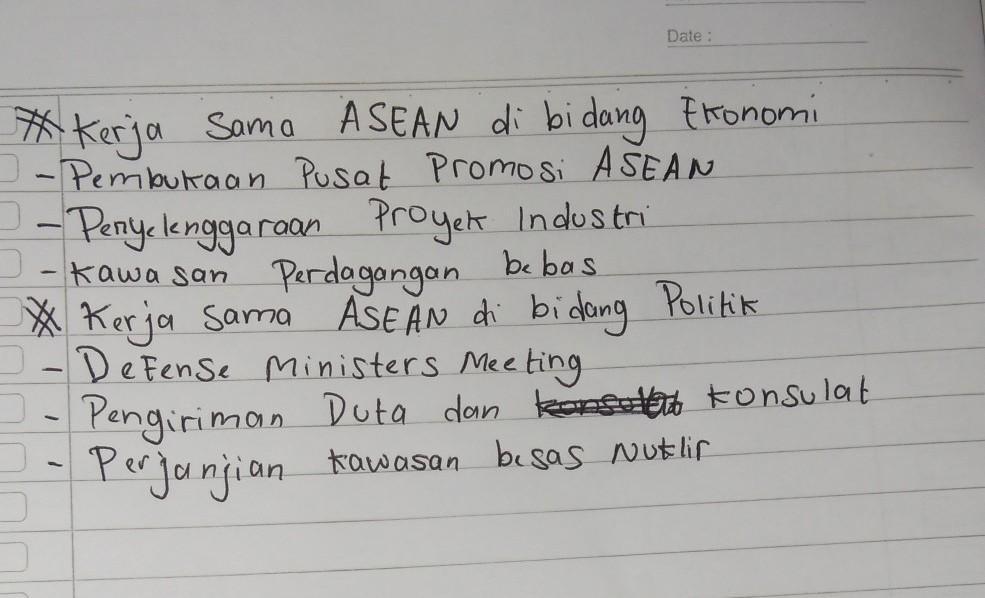 Date :
* Kerja Sama ASEAN di bidang Ekonomi
- Pembukaan Pusat Promosi ASEAN
- Penyelenggaraan Proyek Industri
- Kawasan Perdagangan bebas
* Kerja Sama ASEAN di bidang Politik
- Defense Ministers Meeting
- Pengiriman Duta dan konsulat
- Perjanjian kawasan besas Nuklir